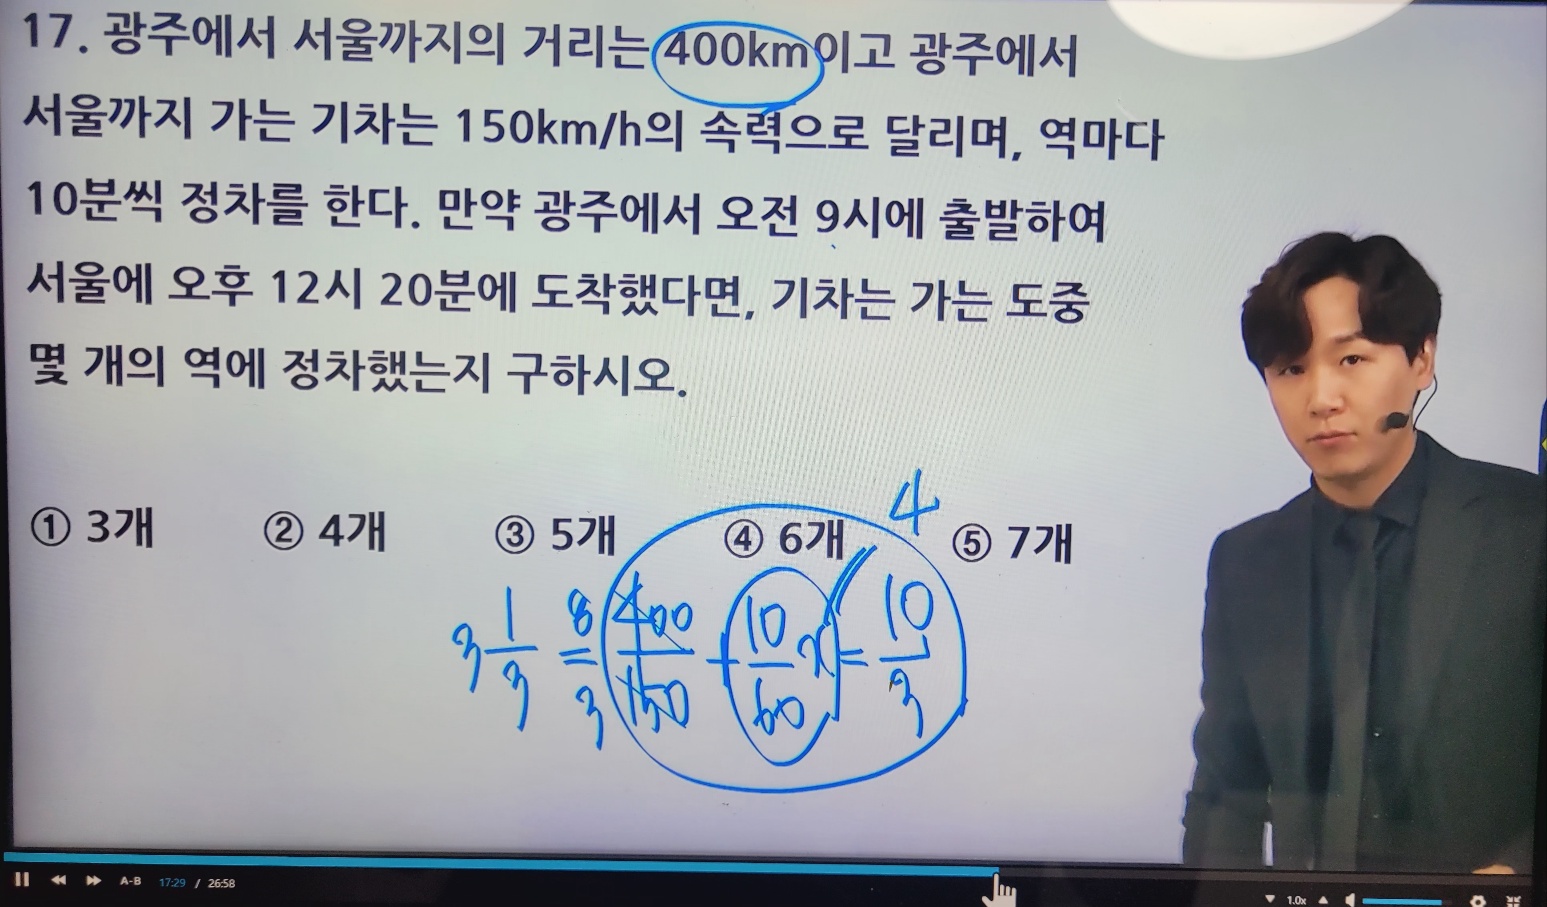 17. 광주에서 서울까지의 거리는 400km이고 광주에서
서울까지 가는 기차는 150km/h의 속력으로 달리며, 역마다
10분씩 정차를 한다. 만약 광주에서 오전 9시에 출발하여
서울에 오후 12시 20분에 도착했다면, 기차는 가는 도중
몇 개의 역에 정차했는지 구하시오.
① 3개 ② 4개 ③ 5개 ④ 6개 ⑤ 7개
4
3 1/3 = 8/3 400/150 + 10/60 x = 10/3
A-B 17:29 / 26:58 1.0x